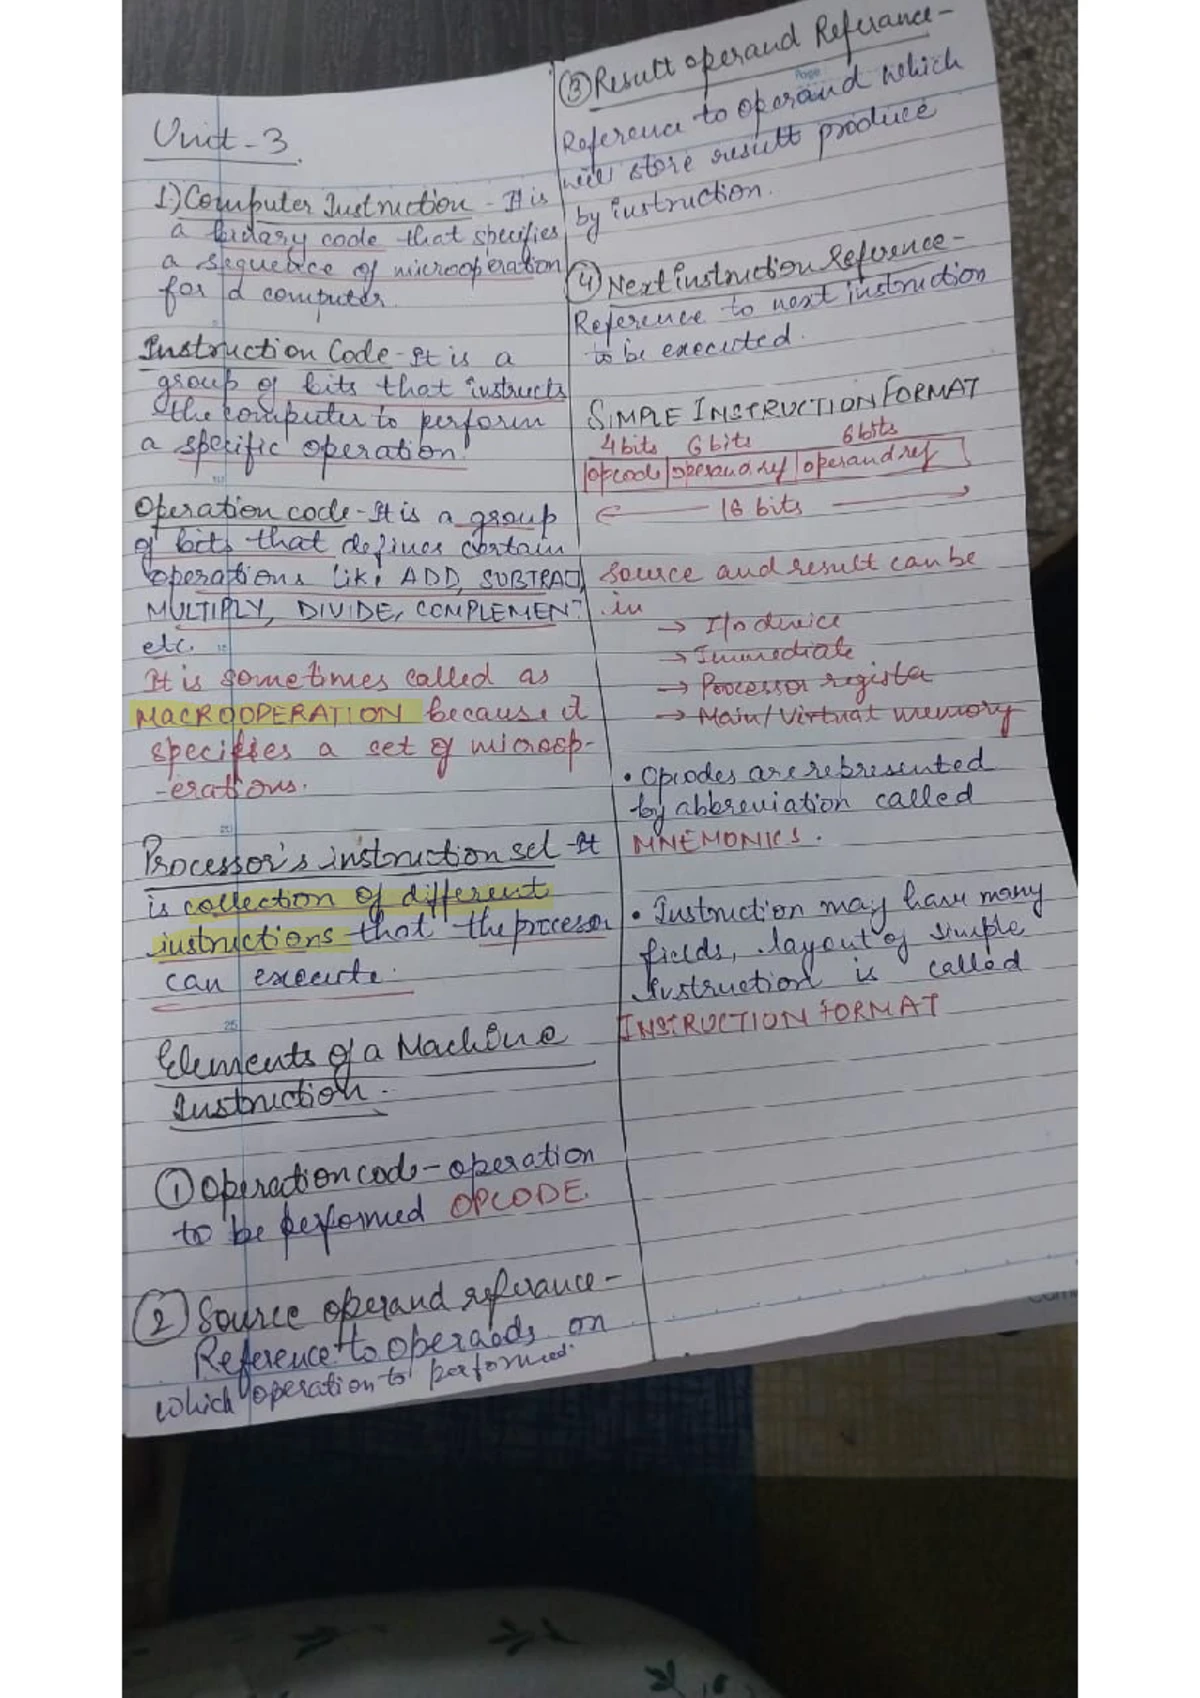 Unit - 3.
1.) Computer Instruction - It is
a binary code that specifies
a sequence of microoperation
for d computer.
Instruction Code - It is a
group of bits that instructs
the computer to perform
a specific operation.
Operation code - It is a group
of bits that defines certain
operations like ADD, SUBTRACT,
MULTIPLY, DIVIDE, COMPLEMENT
etc.
It is sometimes called as
MACROOPERATION because it
specifies a set of microop-
-erations.
Processor's instruction set - It
is collection of different
instructions that the processor
can execute.
Elements of a Machine
Instruction.
① Operation code - operation
to be performed OPCODE.
② Source operand referance -
Reference to operands on
which operation to performed.
③ Result operand Referance -
Page
Reference to operand which
will store result produce
by instruction.
④ Next instruction Reference -
Reference to next instruction
to be executed.
SIMPLE INSTRUCTION FORMAT
4 bits 6 bits 6 bits
opcode | operand ref | operand ref
← 16 bits →
Source and result can be
in
→ I/o device
→ Immediate
→ Processor register
→ Main/Virtual memory
• Opcodes are represented
by abbreviation called
MNEMONICS.
• Instruction may have many
fields, layout of simple
instruction is called
INSTRUCTION FORMAT